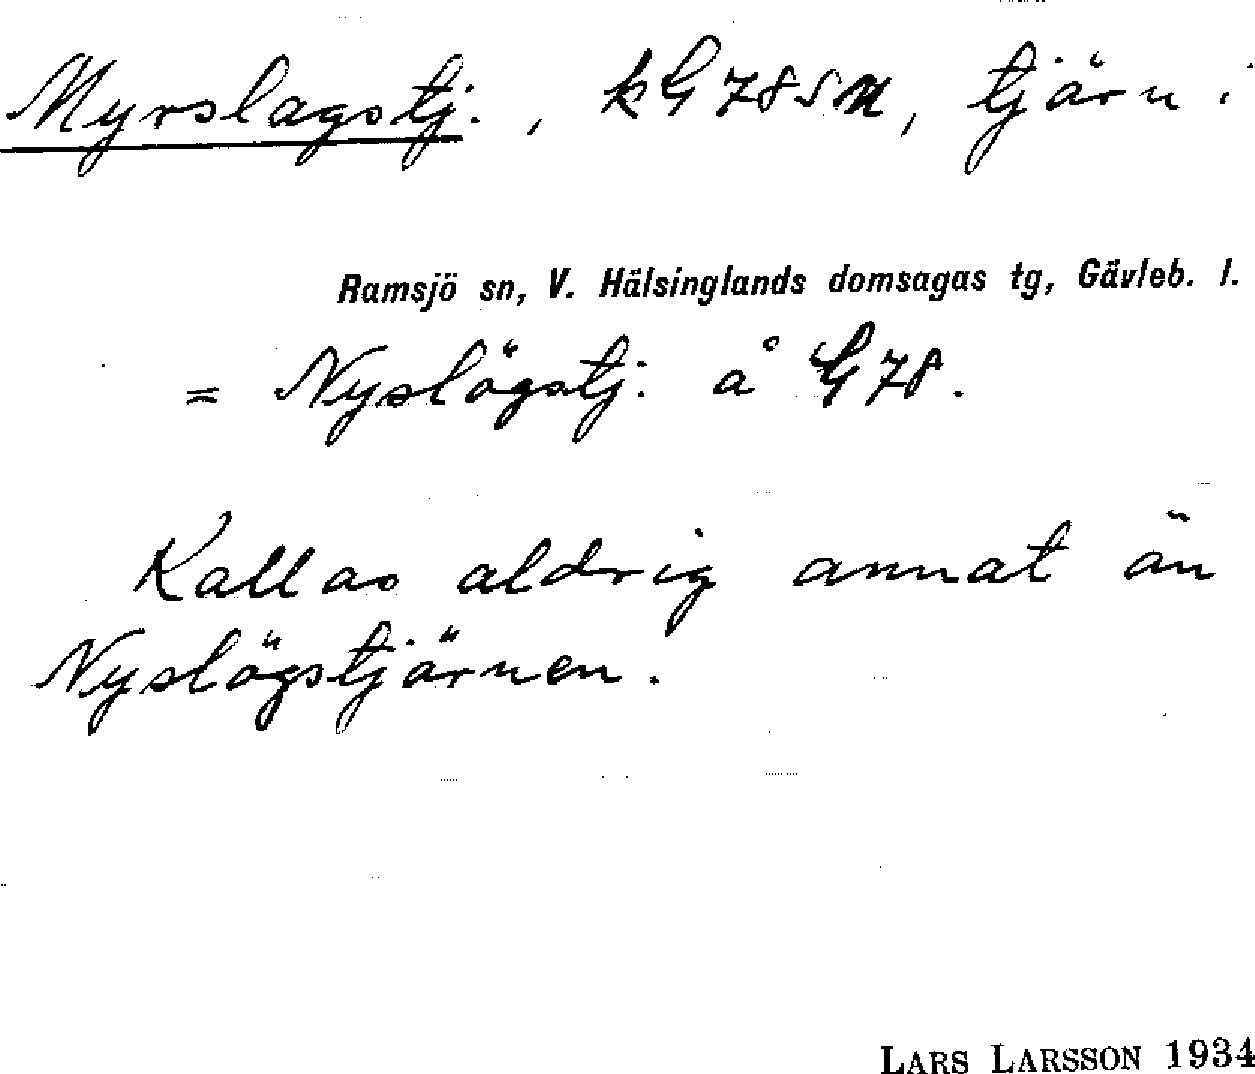 Myrslagstj., kG78SM, tjärn i
Ramsjö sn, V. Hälsinglands domsagas tg, Gävleb. l.
= Nyslögstj. å G78.
Kallas aldrig annat än
Nyslögstjärnen.
LARS LARSSON 1934